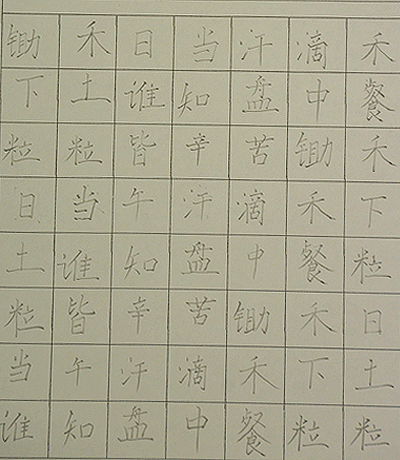 锄禾日当汗滴禾
下土谁知盘中餐
粒粒皆辛苦锄禾
日当午汗滴禾下
土谁知盘中餐粒
粒皆辛苦锄禾日
当午汗滴禾下土
谁知盘中餐粒粒